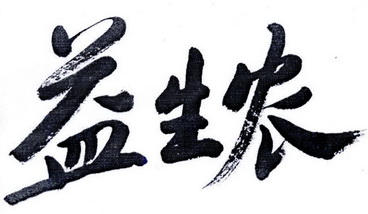 益生农